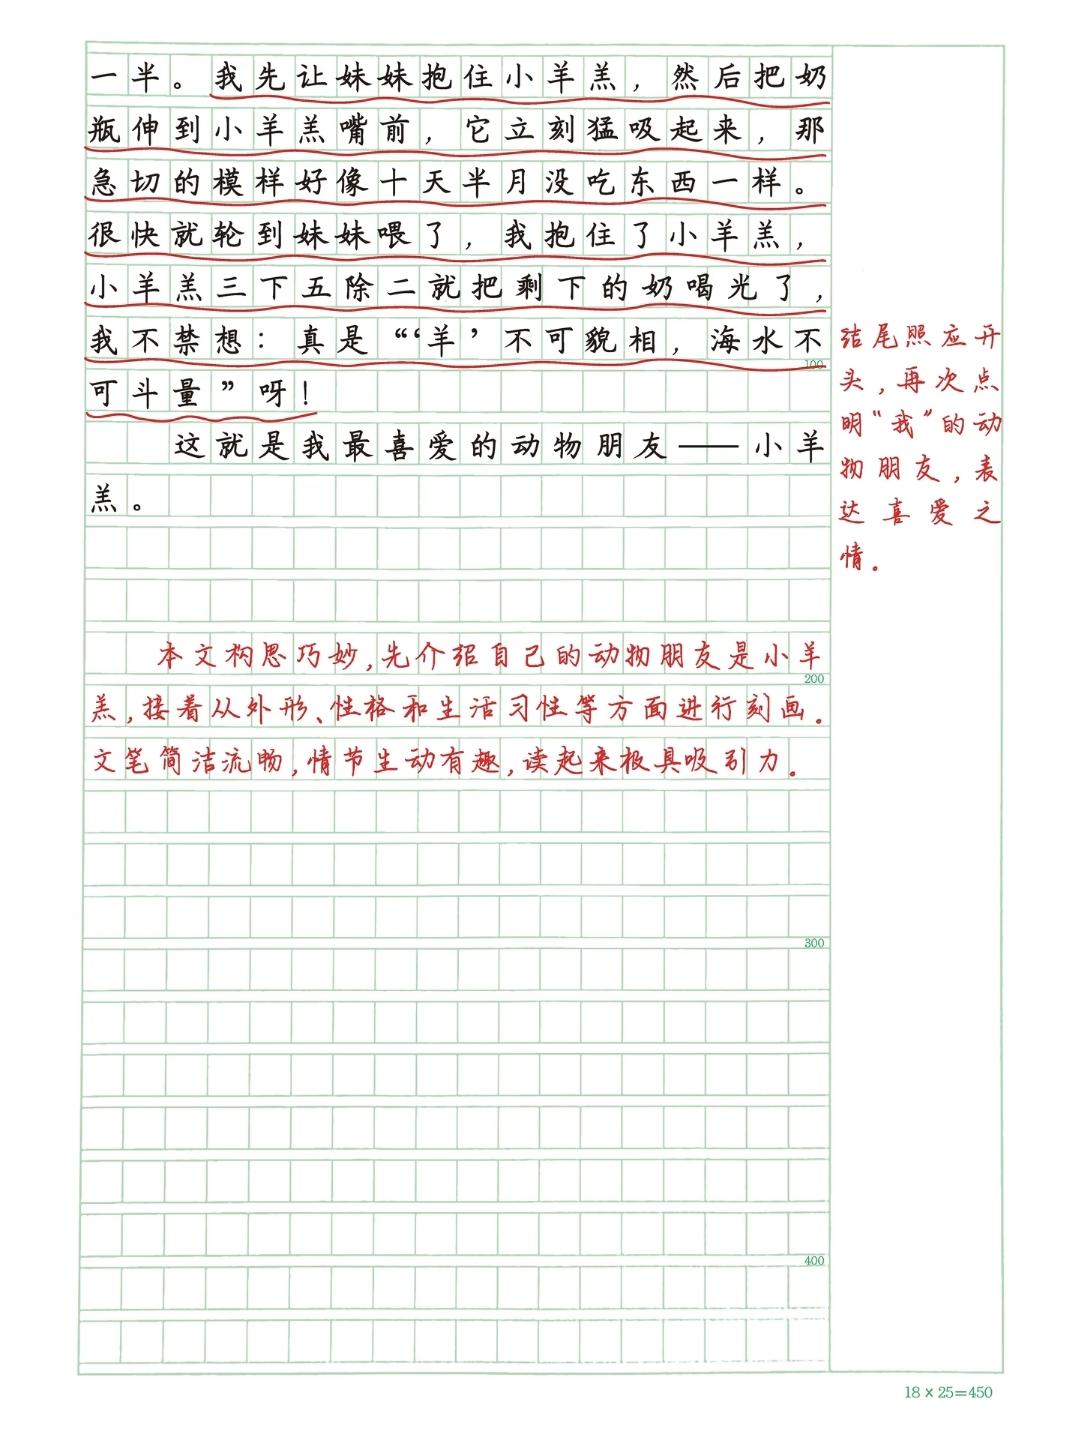 一半。我先让妹妹抱住小羊羔，然后把奶
瓶伸到小羊羔嘴前，它立刻猛吸起来，那
急切的模样好像十天半月没吃东西一样。
很快就轮到妹妹喂了，我抱住了小羊羔，
小羊羔三下五除二就把剩下的奶喝光了，
我不禁想：真是“‘羊’不可貌相，海水不
100
可斗量”呀！
这就是我最喜爱的动物朋友——小羊
羔。
结尾照应开
头，再次点
明“我”的动
物朋友，表
达喜爱之
情。
本文构思巧妙，先介绍自己的动物朋友是小羊
200
羔，接着从外形、性格和生活习性等方面进行刻画。
文笔简洁流畅，情节生动有趣，读起来极具吸引力。
300
400
18×25=450